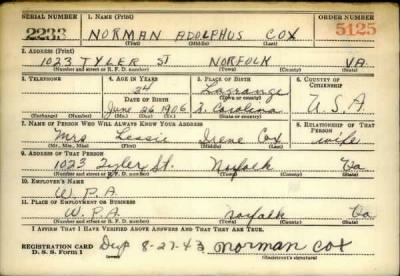 SERIAL NUMBER 1. NAME (Print) ORDER NUMBER
2233 NORMAN ADOLPHUS COX 5125
(First) (Middle) (Last)
2. ADDRESS (Print)
1023 TYLER ST NORFOLK VA.
(Number and street or R. F. D. number) (Town) (County) (State)
3. TELEPHONE 4. AGE IN YEARS 5. PLACE OF BIRTH 6. COUNTRY OF CITIZENSHIP
34 Lagrange
DATE OF BIRTH (Town or county)
June 26 1906 N. Carolina U.S.A
(Exchange) (Number) (Mo.) (Day) (Yr.) (State or country)
7. NAME OF PERSON WHO WILL ALWAYS KNOW YOUR ADDRESS 8. RELATIONSHIP OF THAT PERSON
Mrs Lessie Irene Cox wife
(Mr., Mrs., Miss) (First) (Middle) (Last)
9. ADDRESS OF THAT PERSON
1023 Tyler St. Norfolk Va
(Number and street or R. F. D. number) (Town) (County) (State)
10. EMPLOYER'S NAME
W.P.A.
11. PLACE OF EMPLOYMENT OR BUSINESS
W.P.A Norfolk Va
(Number and street or R. F. D. number) (Town) (County) (State)
I AFFIRM THAT I HAVE VERIFIED ABOVE ANSWERS AND THAT THEY ARE TRUE.
REGISTRATION CARD
D. S. S. Form 1 Dup 8-27-43 norman cox
(Registrant's signature)